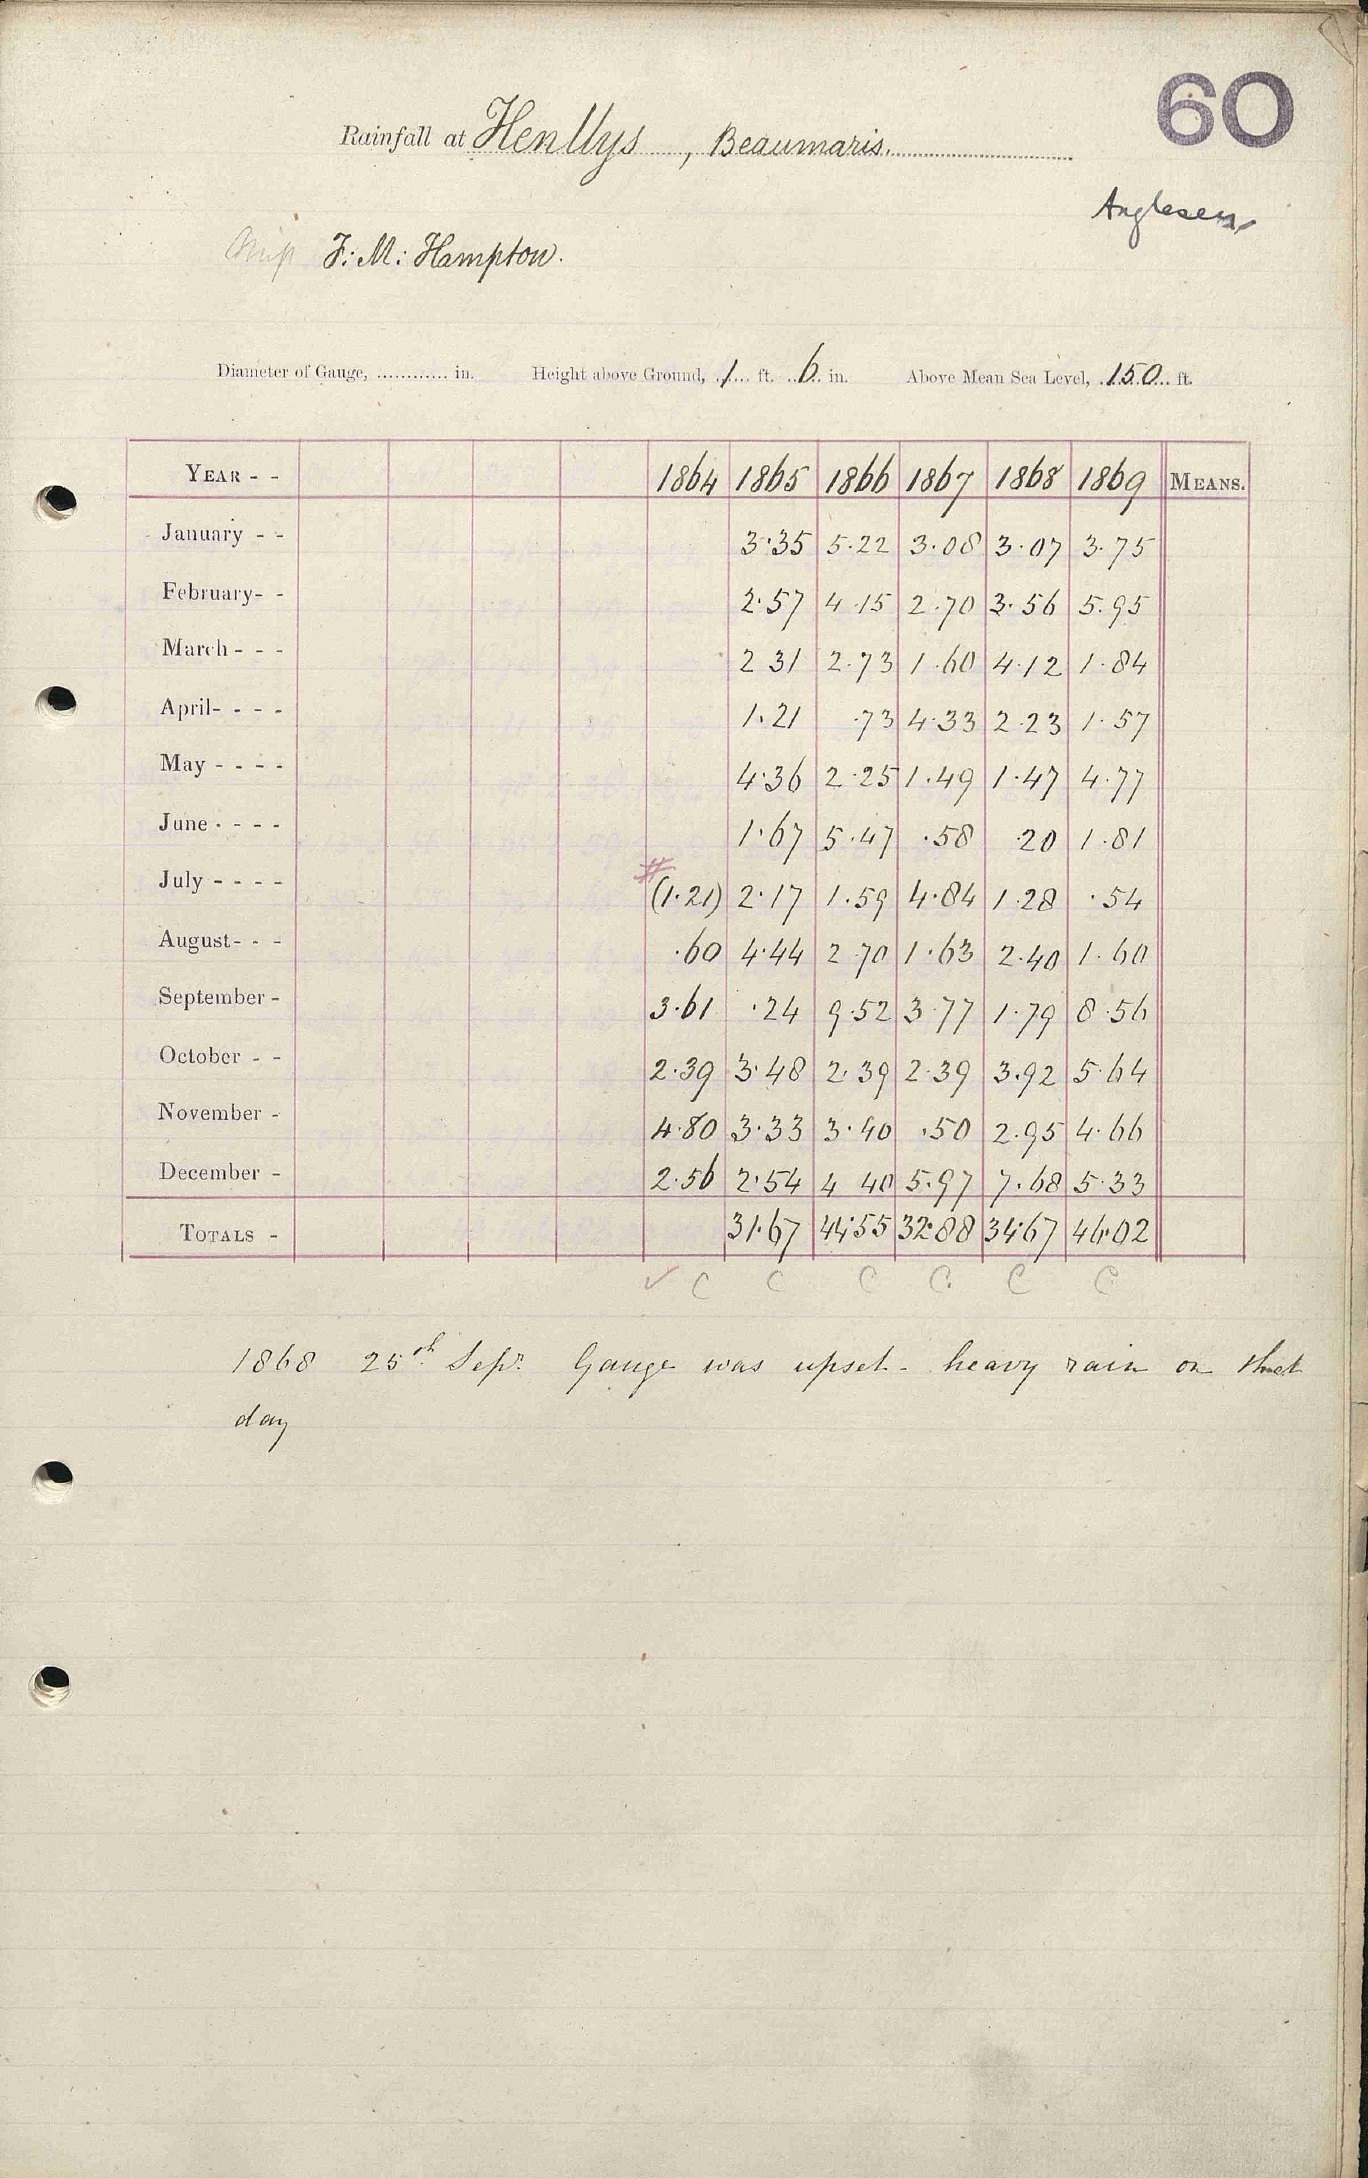 60
Rainfall at Henllys, Beaumaris.
Anglesey
Miss F: M: Hampton.
Diameter of Gauge, ............ in. Height above Ground, 1 ft. 6 in. Above Mean Sea Level, 150 ft.
YEAR - - 1864 1865 1866 1867 1868 1869 MEANS.
January - - 3.35 5.22 3.08 3.07 3.75
February- - 2.57 4.15 2.70 3.56 5.95
March - - - 2 31 2.73 1.60 4.12 1.84
April- - - - 1.21 .73 4.33 2.23 1.57
May - - - - 4.36 2.25 1.49 1.47 4.77
June - - - - 1.67 5.47 .58 .20 1.81
#
July - - - - (1.21) 2.17 1.59 4.84 1.28 .54
August- - - .60 4.44 2.70 1.63 2.40 1.60
September - 3.61 .24 9.52 3.77 1.79 8.56
October - - 2.39 3.48 2.39 2.39 3.92 5.64
November - 4.80 3.33 3.40 .50 2.95 4.66
December - 2.56 2.54 4 40 5.97 7.68 5.33
TOTALS - 31.67 44.55 32.88 34.67 46.02
✓ C C C C. C C
1868 25th Sepr. Gauge was upset - heavy rain on that
day